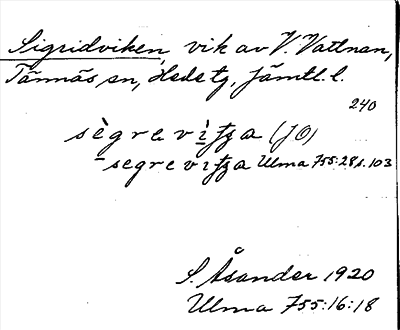 Sigridviken, vik av V. Vattnan,
Tännäs sn, Hede tg, Jämtl. l.
240
sègrevìʈʂa (JO)
segreviʈʂa Ulma 755:28 s. 103
S. Åsander 1920
Ulma 755:16:18